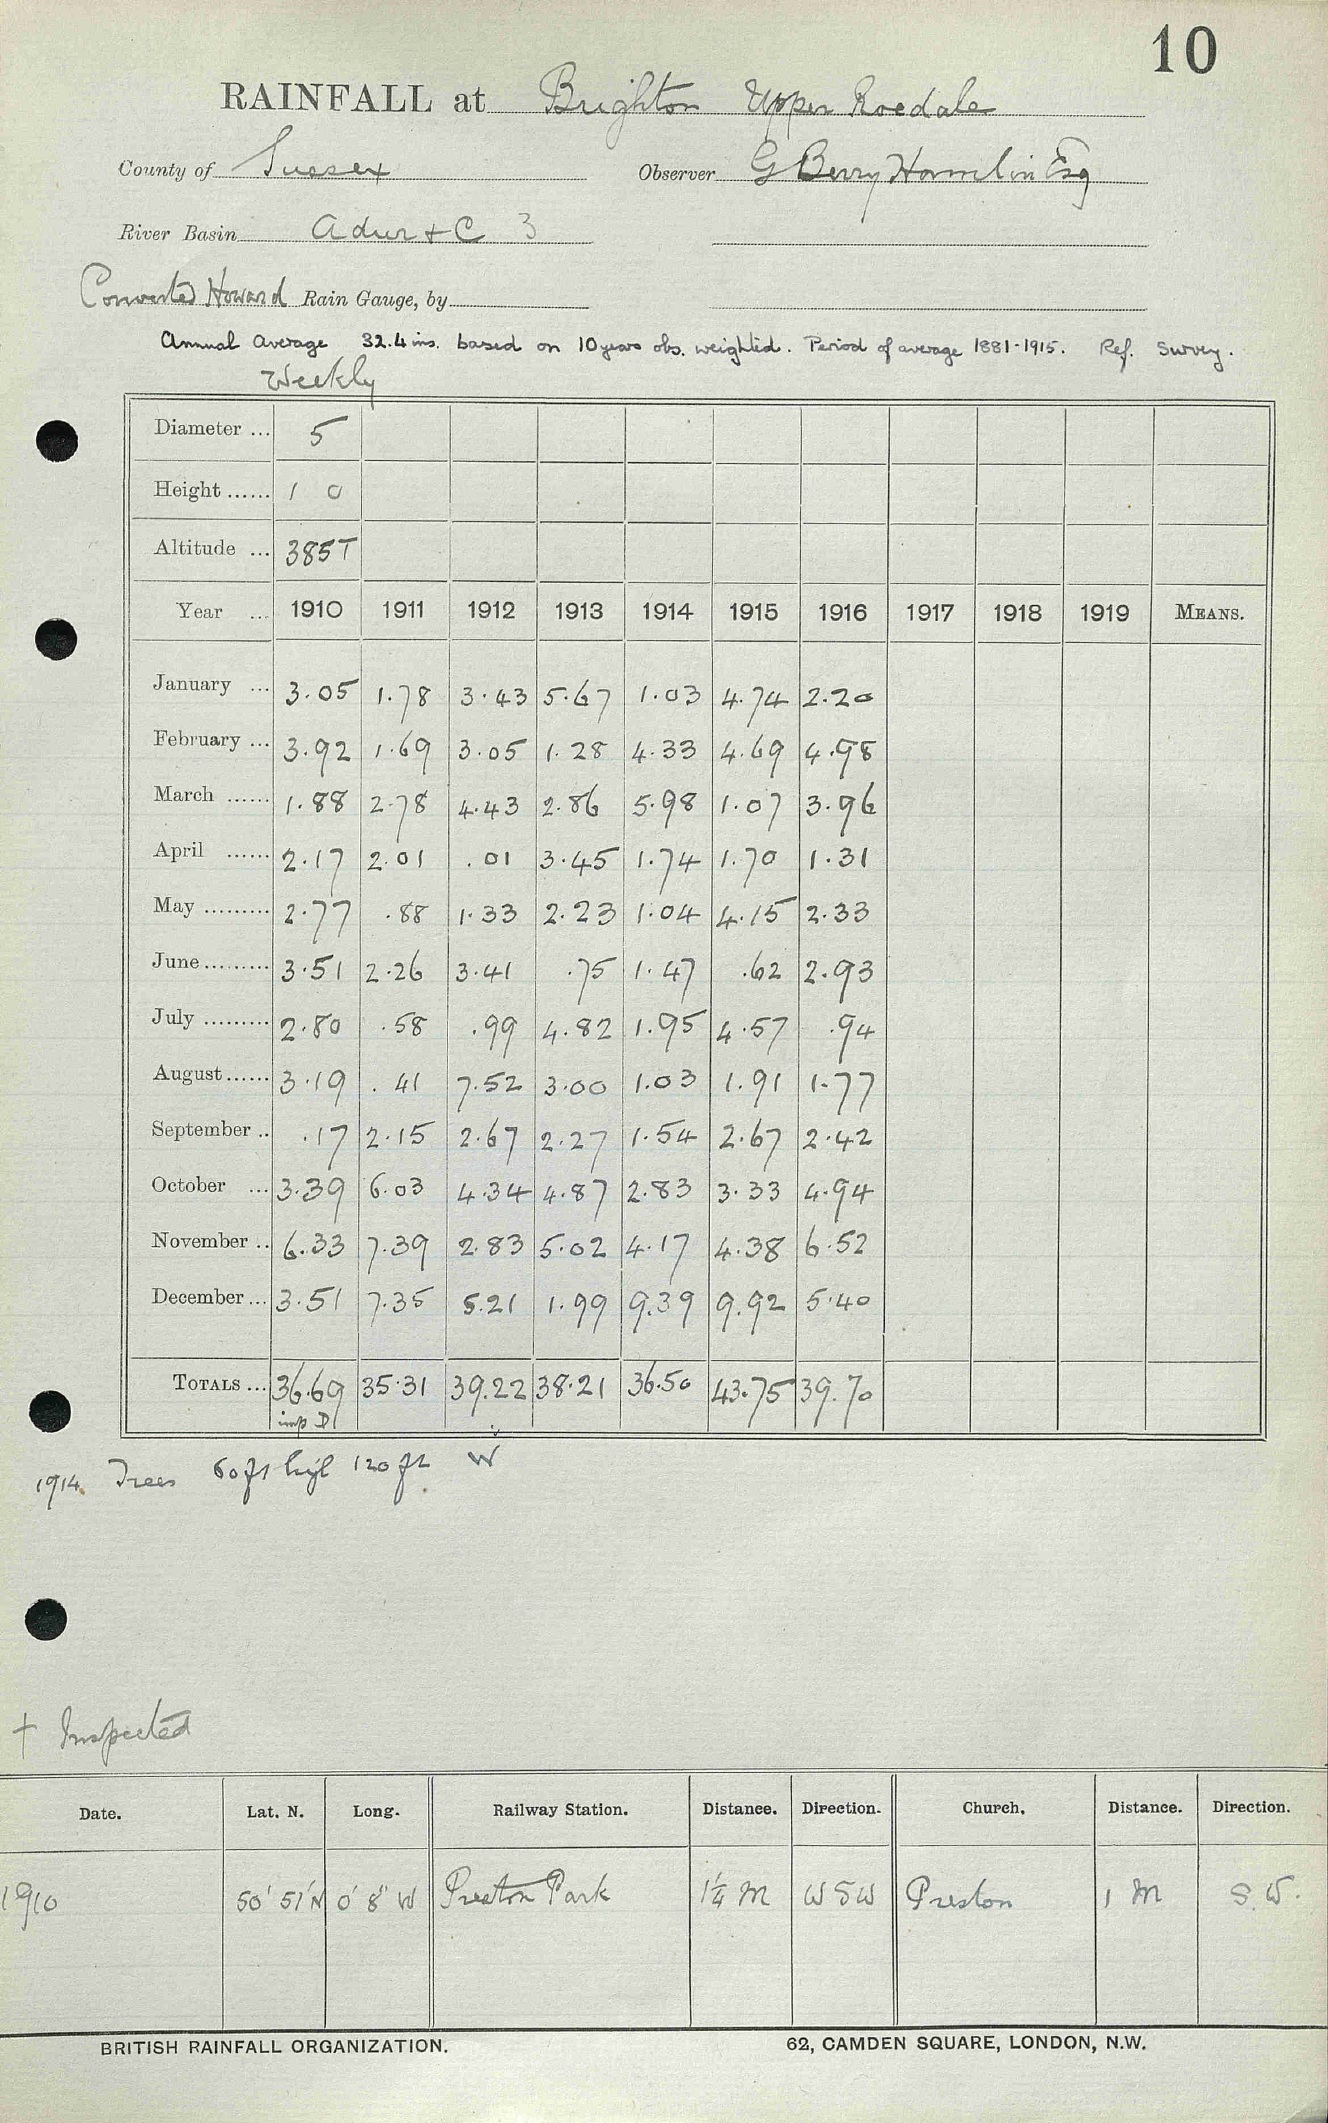 10
RAINFALL at Brighton Upper Roedale
County of Sussex Observer G Berry Hamlin Esq
River Basin Adur + C 3
Converted Howard Rain Gauge, by
Annual Average 32.4 ins. based on 10 years obs. weighted. Period of average 1881-1915. Ref. Survey.
Weekly
Diameter ... 5
Height ...... 1 0
Altitude ... 385T
Year ... 1910 1911 1912 1913 1914 1915 1916 1917 1918 1919 MEANS.
January ... 3.05 1.78 3.43 5.67 1.03 4.74 2.20
February ... 3.92 1.69 3.05 1.28 4.33 4.69 4.98
March ...... 1.88 2.78 4.43 2.86 5.98 1.07 3.96
April ...... 2.17 2.01 .01 3.45 1.74 1.70 1.31
May ......... 2.77 .88 1.33 2.23 1.04 4.15 2.33
June ......... 3.51 2.26 3.41 .75 1.47 .62 2.93
July ......... 2.80 .58 .99 4.82 1.95 4.57 .94
August ...... 3.19 .41 7.52 3.00 1.03 1.91 1.77
September .. .17 2.15 2.67 2.27 1.54 2.67 2.42
October ... 3.39 6.03 4.34 4.87 2.83 3.33 4.94
November .. 6.33 7.39 2.83 5.02 4.17 4.38 6.52
December ... 3.51 7.35 5.21 1.99 9.39 9.92 5.40
TOTALS ... 36.69 35.31 39.22 38.21 36.50 43.75 39.70
imp D
1914. Trees 60 ft high 120 ft W
† Inspected
Date. Lat. N. Long. Railway Station. Distance. Direction. Church. Distance. Direction.
1910 50' 51' N 0' 8" W Preston Park 1¼ M W S W Preston 1 M S.W.
BRITISH RAINFALL ORGANIZATION. 62, CAMDEN SQUARE, LONDON, N.W.